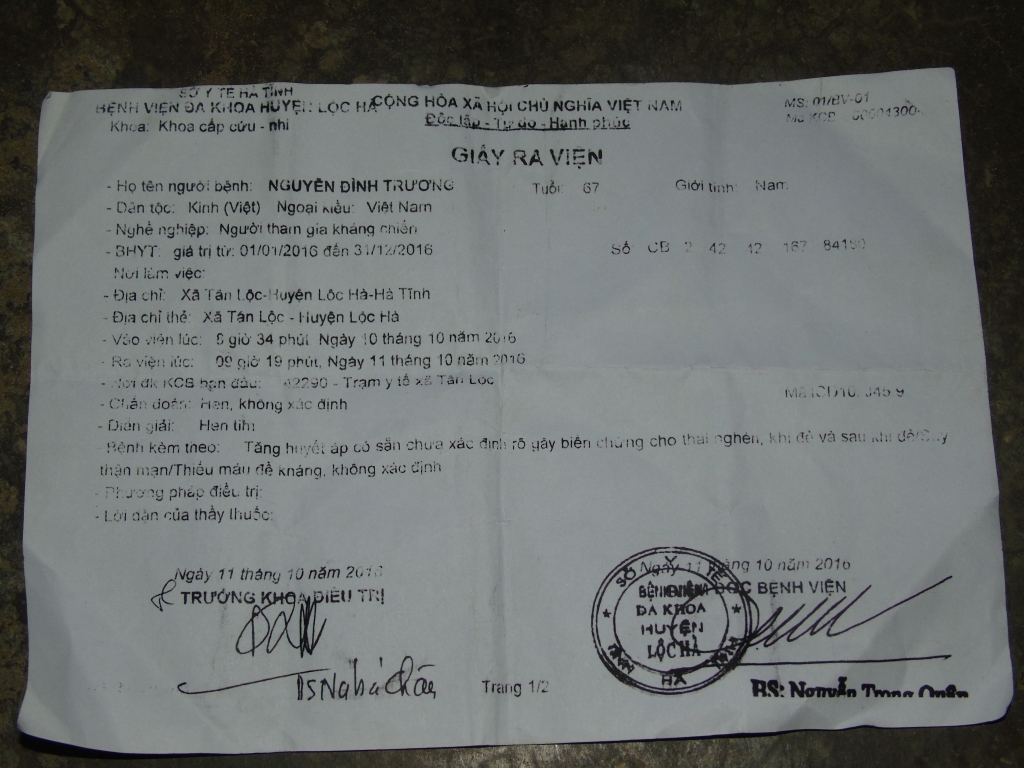 SỞ Y TẾ HÀ TĨNH
BỆNH VIỆN ĐA KHOA HUYỆN LỘC HÀ
Khoa: Khoa cấp cứu - nhi
CỘNG HÒA XÃ HỘI CHỦ NGHĨA VIỆT NAM
Độc lập - Tự do - Hạnh phúc
MS: 01/BV-01
GIẤY RA VIỆN
- Họ tên người bệnh: NGUYỄN ĐÌNH TRƯƠNG Tuổi: 67 Giới tính: Nam
- Dân tộc: Kinh (Việt) Ngoại kiều: Việt Nam
- Nghề nghiệp: Người tham gia kháng chiến
- BHYT: giá trị từ: 01/01/2016 đến 31/12/2016 Số CB 2 42 42 167
Nơi làm việc:
- Địa chỉ: Xã Tân Lộc-Huyện Lộc Hà-Hà Tĩnh
- Địa chỉ thẻ: Xã Tân Lộc - Huyện Lộc Hà
- Vào viện lúc: giờ 34 phút, Ngày 10 tháng 10 năm 2016
- Ra viện lúc: 09 giờ 19 phút, Ngày 11 tháng 10 năm 2016
- Nơi đk KCB ban đầu: 42290 - Trạm y tế xã Tân Lộc
- Chẩn đoán: Hen, không xác định Mã ICD10: J45.9
- Diễn giải: Hen tim
- Bệnh kèm theo: Tăng huyết áp có sẵn chưa xác định rõ gây biến chứng cho thai nghén, khi đẻ và sau khi đẻ/Suy
thận mạn/Thiếu máu đề kháng, không xác định
- Phương pháp điều trị:
- Lời dặn của thầy thuốc:
Ngày 11 tháng 10 năm 2016
TRƯỞNG KHOA ĐIỀU TRỊ
Ngày 11 tháng 10 năm 2016
ĐỐC BỆNH VIỆN
SỞ Y TẾ
BỆNH VIỆN
ĐA KHOA
HUYỆN
LỘC HÀ
TỈNH HÀ TĨNH
Trang 1/2
BS: Nguyễn